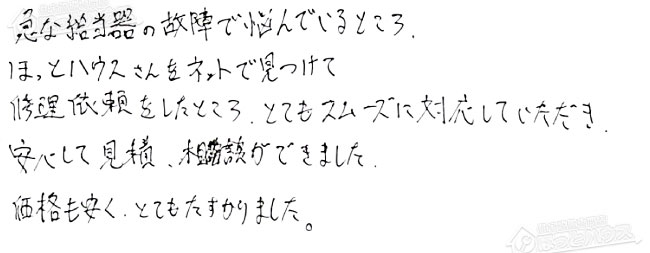 急な給当器の故障で悩んでいるところ、
ほっとハウスさんをネットで見つけて
修理依頼をしたところ、とてもスムーズに対応していただき、
安心して見積、相談ができました。
価格も安く、とてもたすかりました。
ほっとハウス